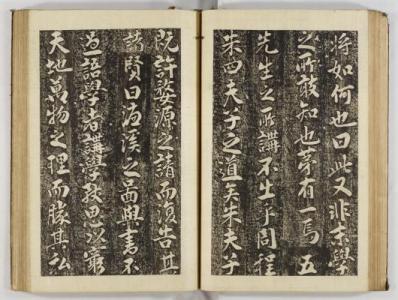 将如何也曰此又非末學
之所敢知也第有一焉五
先生之所講不出乎周程
朱四夫子之道矣朱夫子
既許婺源之請而復告其
諸賢曰濂溪之圖與書不
過語學者講學致思以窮
天地萬物之理而勝其私